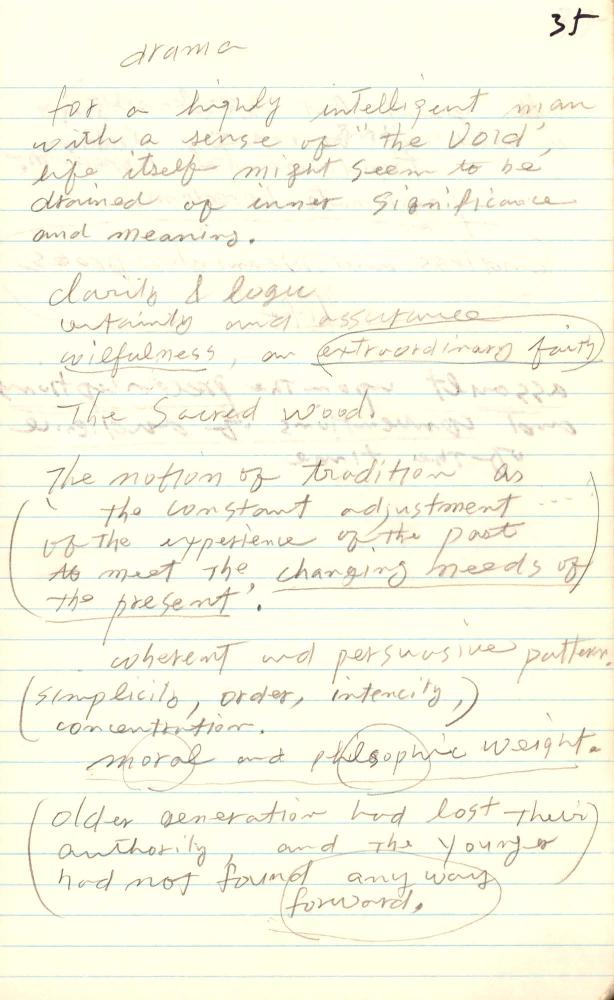 35
drama
for a highly intelligent man
with a sense of "the Void',
life itself might seem to be
drained of inner significance
and meaning.
clarity & logic
certainty and assurance
wilfulness, an extraordinary faith
The Sacred Wood.
The notion of tradition as
'the constant adjustment ....
of the experience of the past
to meet the changing needs of
the present'.
coherent and persuasive pattern.
(simplicity, order, intencity,)
concentration.
moral and philsophic weight.
(Older generation had lost their
authority, and the younger)
had not found any way
forward.